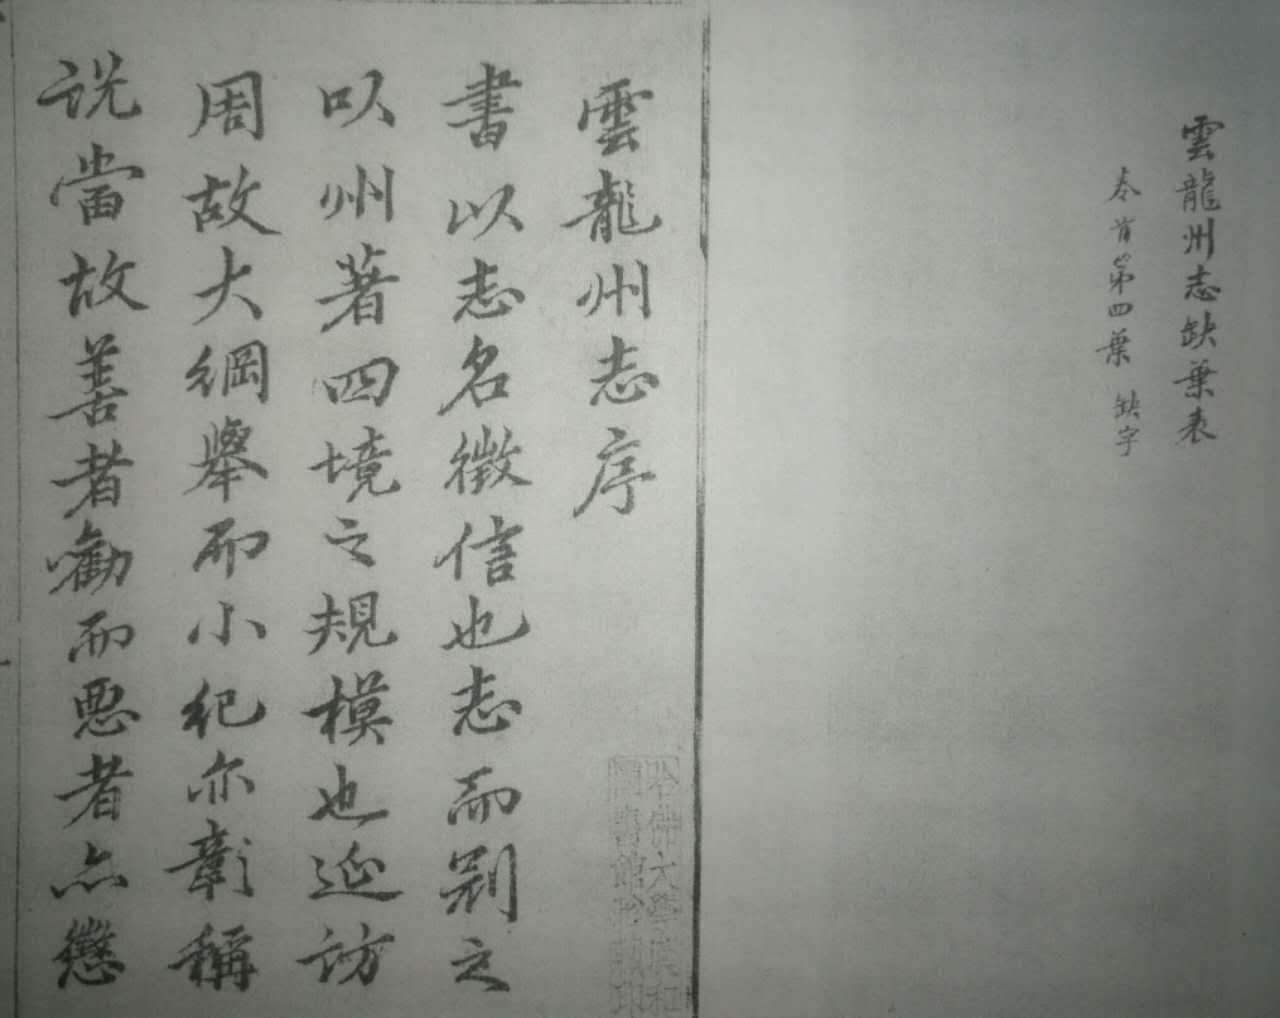 雲龍州志缺葉表
卷首第四葉 缺字
雲龍州志序
書以志名徵信也志而别之
以州著四境之規模也延訪
周故大綱舉而小紀亦彰稱
说當故善者勸而惡者亦懲
哈佛大學漢和
圖書館珍藏印